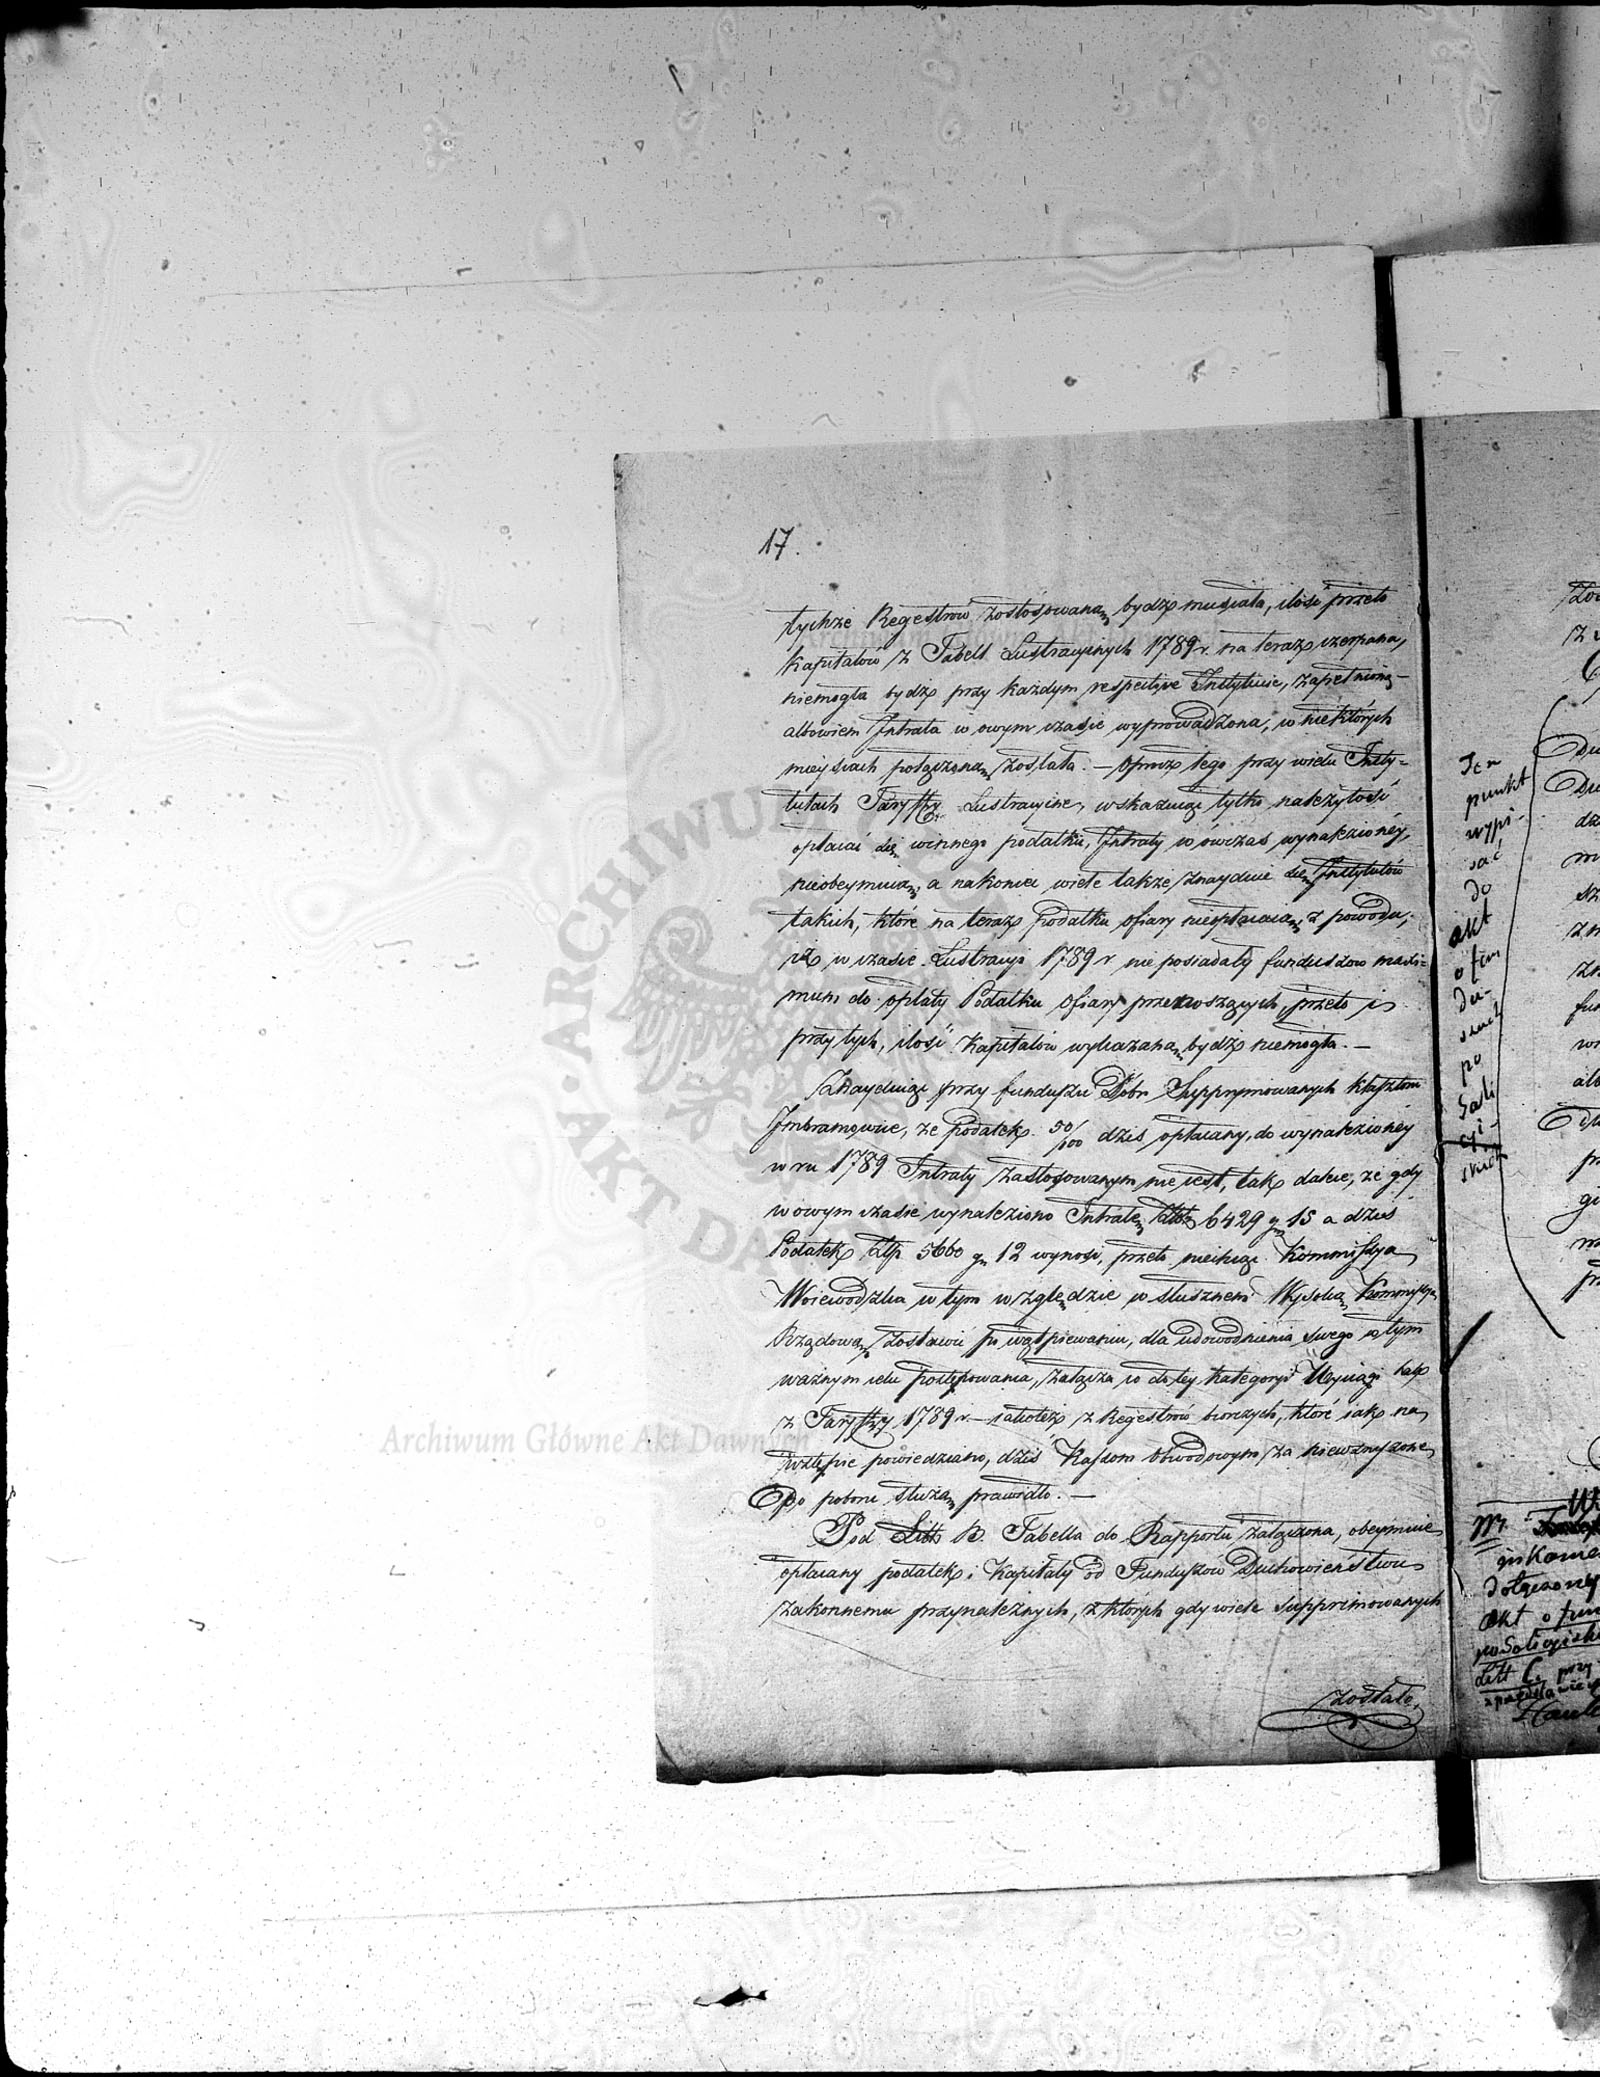 17.
tychże Regestrów zostosowaną bydź musiała, ilość przeto
Kapitałów z Tabell Lustracyinych 1789 r. na teraz czerpana,
niemogła bydź przy każdym respective Instytucie, zapełnioną
albowiem Intrata w owym czasie wyprowadzona, w niektórych
mieyscach połączoną została. — Oprócz tego przy wielu Insty-
tutach Taryffy Lustracyine, wskazuią tylko należytość
opłacać się winnego podatku, Intraty wówczas wynalezioney,
nieobeymuią, a nakoniec wiele także znayduie się Instytutów
takich, które na teraz Podatku ofiary nieopłacaią, z powodu,
iż w czasie Lustracyi 1789 r nie posiadały funduszów maxi-
mum do opłaty Podatku Ofiary przenoszących, przeto i
przy tych, ilość Kapitałów wykazaną bydź niemogła. —
Znayduiąc przy funduszu Dóbr Supprymowanych klasztoru
Imbramowice, że Podatek 50/100 dziś opłacany, do wynalezioney
w ru 1789 Intraty zastosowanym nie iest, tak dalece, że gdy
w owym czasie wynaleziono Intratę Złtp 6429 gr 15 a dziś
Podatek Złp. 5660 gr 12 wynosi, przeto niechcąc Kommissya
Woiewodzka w tym względzie w słusznem Wysoką Kommissyą
Rządową zostawić powątpiewaniu, dla udowodnienia swego w tym
ważnym celu postępowania, załącza w do tey kategoryi Wyciągi tak
z Taryffy 1789 r. — iakoteż z Regestrów biorczych, które iak na
wstępie powiedziano, dziś Kassom Obwodowym za niewzruszone
Do poboru służą prawidło. —
Pod Litt B. Tabella do Rapportu załączona, obeymuie
opłacany podatek i Kapitały od Funduszów Duchowieństwu
Zakonnemu przynależnych, z których gdy wiele supprimowanych
zostało,
Ten
punkt
wypi-
sać
do
akt
o fun
du-
szach
po
Gali
cyi-
skich
dołączoney
akt o fun
po Galicyiski
Litt C. przy-